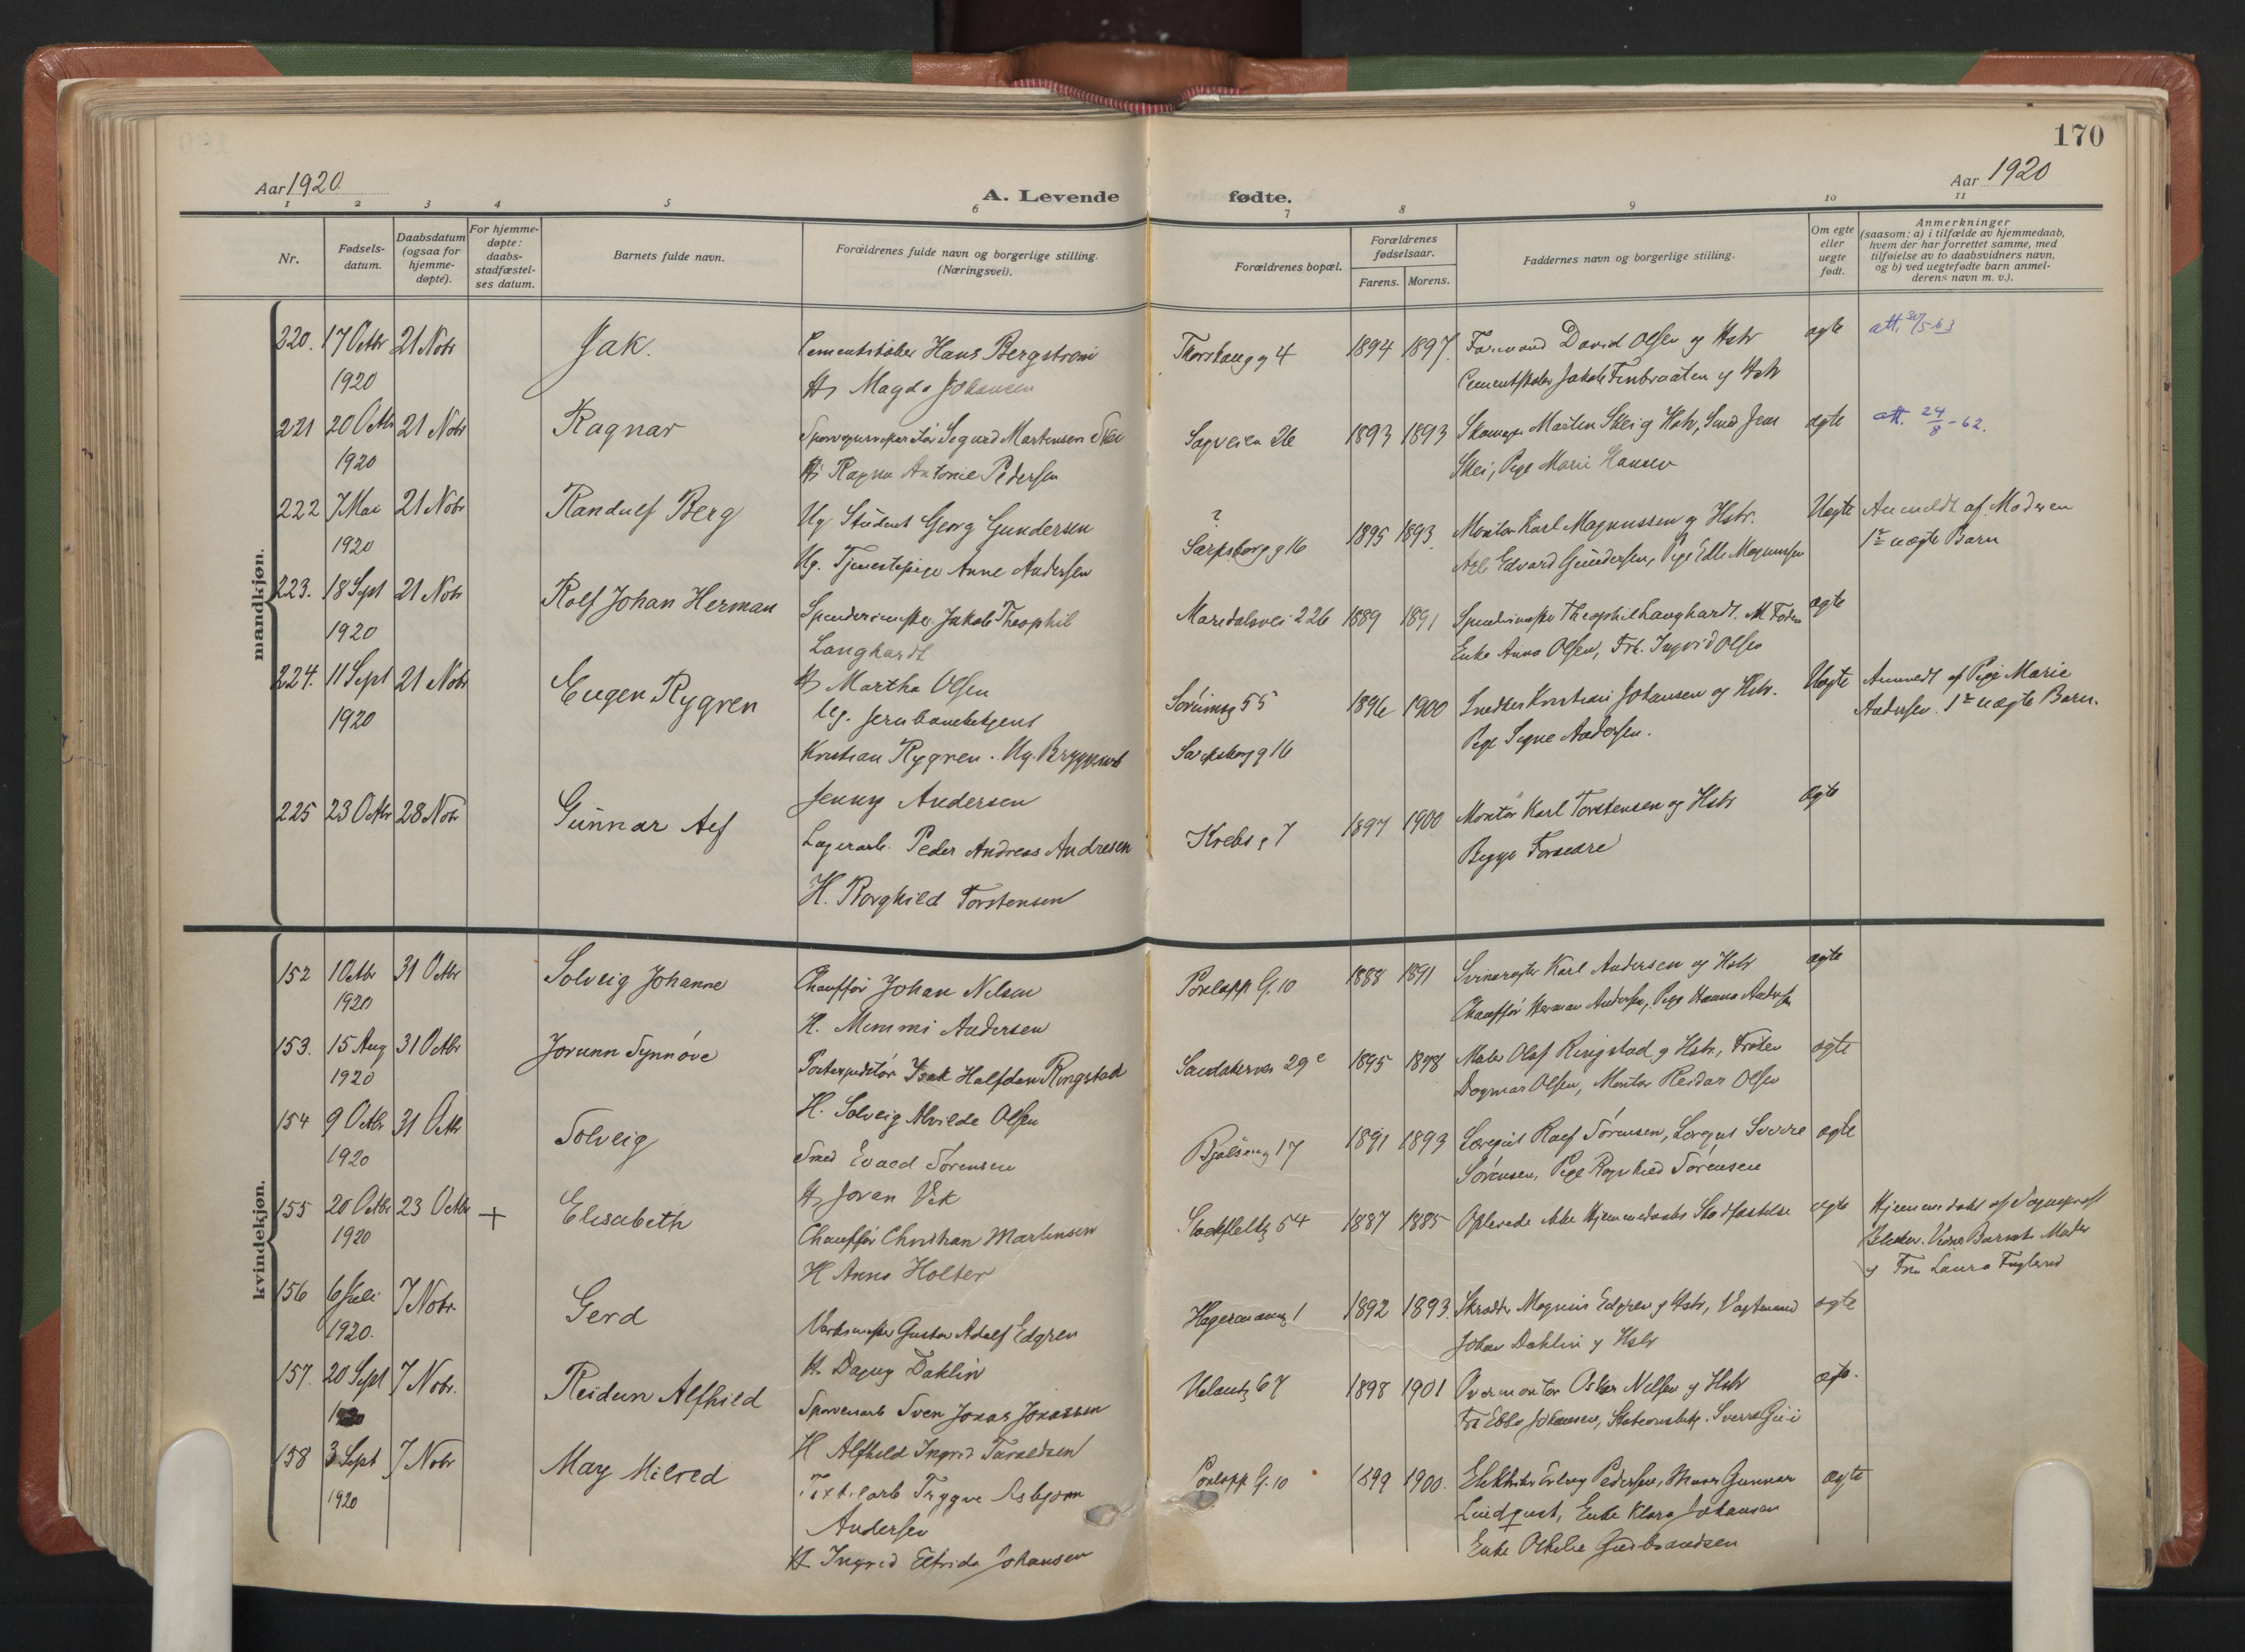 170
Aar 1920
Aar 1920
A. Levende fødte.
1 2 3 4 5 6 7 8 9 10 11
Nr.
Fødsels-
datum.
Daabsdatum
(ogsaa for
hjemme-
døpte).
For hjemme-
døpte:
daabs-
stadfæstel-
ses datum.
Barnets fulde navn.
Forældrenes fulde navn og borgerlige stilling.
(Næringsvei).
Forældrenes bopæl.
Forældrenes
fødselsaar.
Farens. Morens.
Faddernes navn og borgerlige stilling.
Om egte
eller
uegte
født.
Anmerkninger
(saasom: a) i tilfælde av hjemmedaab,
hvem der har forrettet samme, med
tilføielse av to daabsvidners navn,
og b) ved uegtefødte barn anmel-
derens navn m. v.).
mandkjøn.
220. 17 Octbr 21 Nobr Jak. Hans Bergstrøm
1920
H Magda Johansen
4 1894 1897. Formand David Olsen og Hstr ægte att.
og Hstr
221 20 Octbr 21 Nobr Ragnar Sigurd Martensen Skei
1920
H Ragna Antonie Pedersen
Sagveien 26 1893 1893 Martin Skei og Hstr, Smed Jens ægte att. 24/8-62.
Skei, Pige Marie Hansen
222 7 Mai 21 Nobr Randulf Berg Ug Student Georg Gundersen
1920
Ug. Tjenestepige Anne Andersen
?
Sarpsborg g 16 1895 1893 Montør Karl Magnussen og Hstr. Uegte Anmeldt af Moderen
Edvard Gundersen, Pige Magnussen 1ste uægte Barn
223. 18 Sept 21 Nobr Rolf Johan Herman Jakob Theophil
1920
Langhardt
H Martha Olsen
Maridalsvei 226 1889 1891 Theophil Langhardt. ægte
Enke Anna Olsen, Frk. Ingrid Olsen
224. 11 Sept 21 Nobr Eugen Rygren Ug. Jernbanebetjent
1920
Kristian Rygren. Ug.
Jenny Andersen
55 1896 1900 Snedker Kristian Johansen og Hstr. Uegte Anmeldt af Pige Marie
Sarpsborg g 16
Pige Signe Andersen. Andersen. 1ste uægte Barn.
225 23 Octbr 28 Nobr Gunnar Alf Lagerarb. Peder Andreas Andresen
H. Borghild Torstensen
Krebs g 7 1897 1900 Montør Karl Torstensen og Hstr ægte
Begge Forældre
kvindekjøn.
152 1 Octbr 31 Octbr Solveig Johanne Chauffør Johan Nilsen
1920
H. Mimmi Andersen
G. 10 1888 1891 Karl Andersen og Hstr ægte
Chauffør Herman Andersen, Pige Hanna Andersen
153. 15 Aug 31 Octbr Jorunn Synnøve Postexpeditør Isak Halfdan Ringstad
1920
H. Solveig Alvilde Olsen
Sandakerver 29 c 1895 1898 Maler Olaf Ringstad og Hstr, Frøken ægte
Dagmar Olsen, Montør Reidar Olsen
154 9 Octbr 31 Octbr Solveig Smed Evald Sørensen
1920
H Jovan Vik
17 1891 1893 Rolf Sørensen, Sverre ægte
Sørensen, Pige Ragnhild Sørensen
155 20 Octbr 23 Octbr + Elisabeth Chauffør Christian Martinsen
1920
H Anna Holter
54 1887 1885 Oplevede ikke Hjemmedaabs Stadfæstelse ægte Hjemmedøbt af Sogneprest
Vidner Barnets Moder
og Fru Laura Fuglerud
156 6 Juli 7 Nobr. Gerd Gustav Adolf Edgren
1920.
H. Dagny Dahlin
Hagermannsg 1 1892 1893. Skrædder Magnus Edgren og Hstr, Vagtmand ægte
Johan Dahlin og Hstr
157. 20 Sept 7 Nobr. Reidun Alfhild Sporveisarb Sven Jonas Jonassen
H Alfhild Ingrid Taraldsen
67 1898 1901 Overmontør Oskar Nilsen og Hstr ægte.
Johansen,
158 3 Sept 7 Nobr May Milred Textilarb Trygve Asbjørn
1920
Andersen
H. Ingrid Elfrida Johansen
G. 10 1899 1900. Pedersen, Murer Gunnar ægte
Lindquist, Enke Klara Johansen
Enke Gudbrandsen